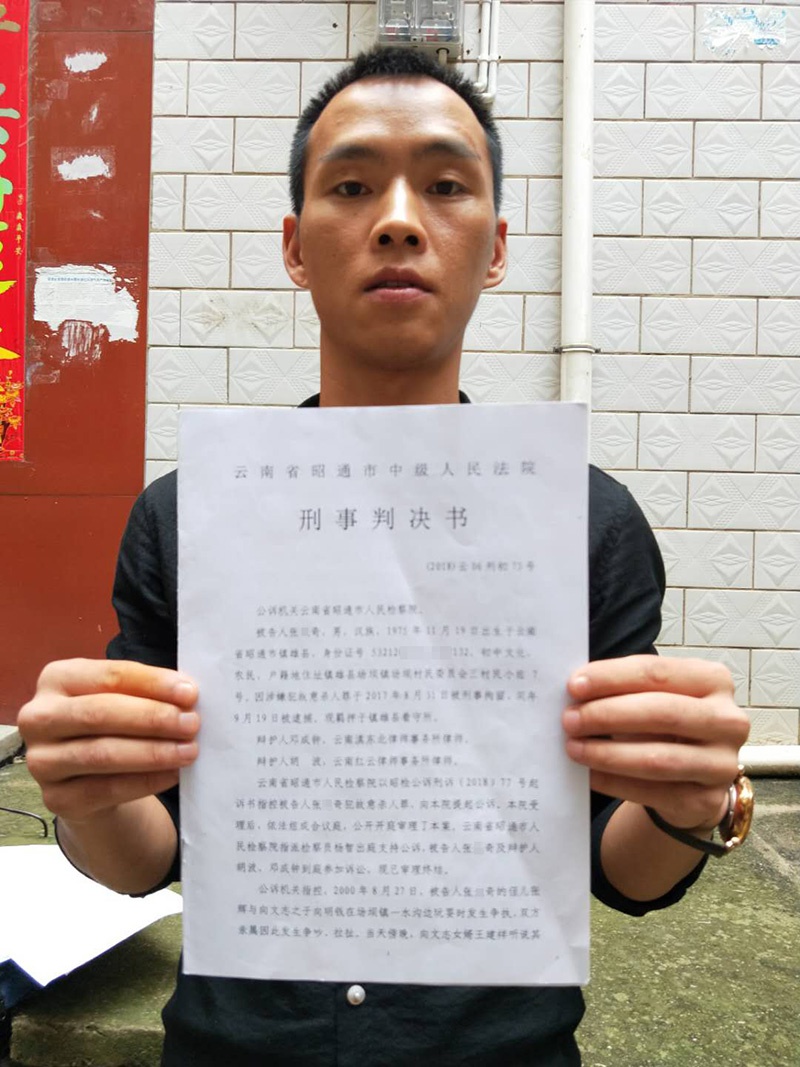 云南省昭通市中级人民法院
刑事判决书
(2018)云06刑初75号
公诉机关云南省昭通市人民检察院。
被告人张 奇,男,汉族,1975年11月19日出生于云南
省昭通市镇雄县,身份证号53212 132,初中文化,
农民,户籍地住址镇雄县场坝镇场坝村民委员会三村民小组7
号。因涉嫌犯故意杀人罪于2017年8月31日被刑事拘留,同年
9月19日被逮捕,现羁押于镇雄县看守所。
辩护人邓成钟,云南滇东北律师事务所律师。
辩护人胡 波,云南红云律师事务所律师。
云南省昭通市人民检察院以昭检公诉刑诉(2018)77号起
诉书指控被告人张 奇犯故意杀人罪,向本院提起公诉。本院受
理后,依法组成合议庭,公开开庭审理了本案。云南省昭通市人
民检察院指派检察员杨智出庭支持公诉,被告人张 奇及辩护人
胡波、邓成钟到庭参加诉讼。现已审理终结。
公诉机关指控,2000年8月27日,被告人张 奇的侄儿张
辉与向文志之子向明钱在场坝镇一水沟边玩耍时发生争执,双方
亲属因此发生争吵、拉扯。当天傍晚,向文志女婿王建祥听说其
岁岁平安